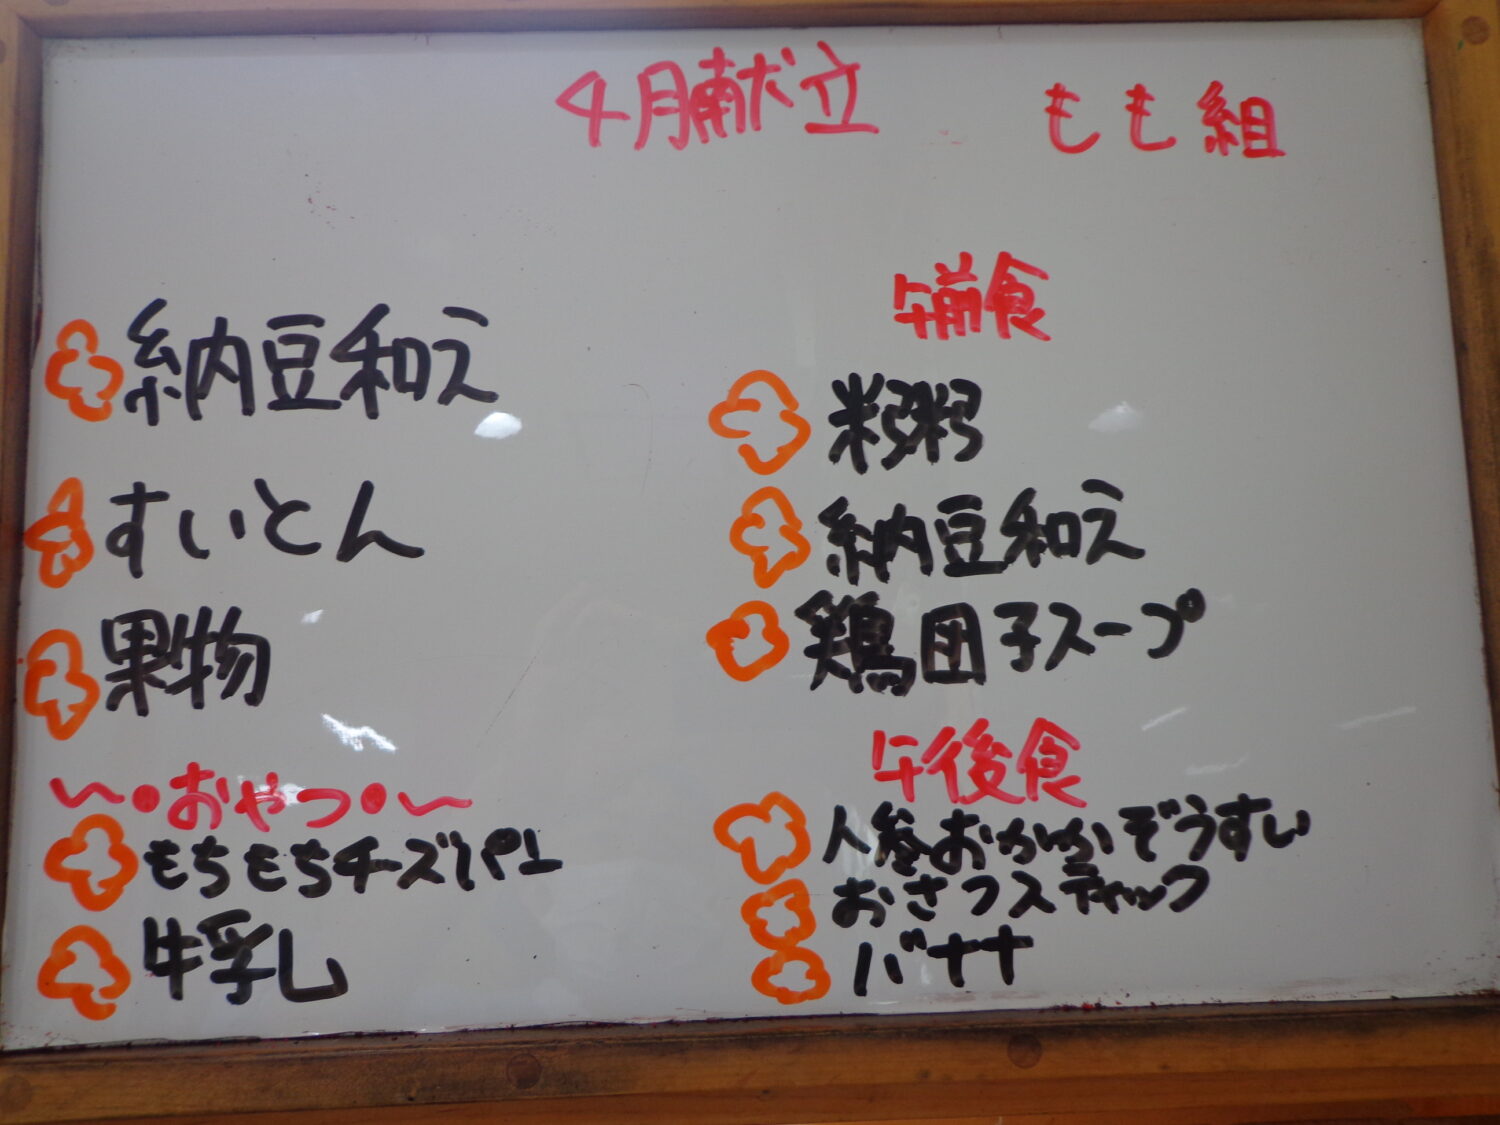 4月献立
もも組
納豆和え
すいとん
果物
〜・おやつ・〜
もちもちチーズパン
牛乳
午前食
粥
納豆和え
鶏団子スープ
午後食
人参おかかぞうすい
おさつスティック
バナナ